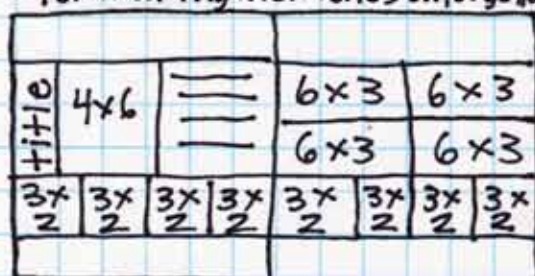 title
4x6
6x3 6x3
6x3 6x3
3x2 3x2 3x2 3x2 3x2 3x2 3x2 3x2